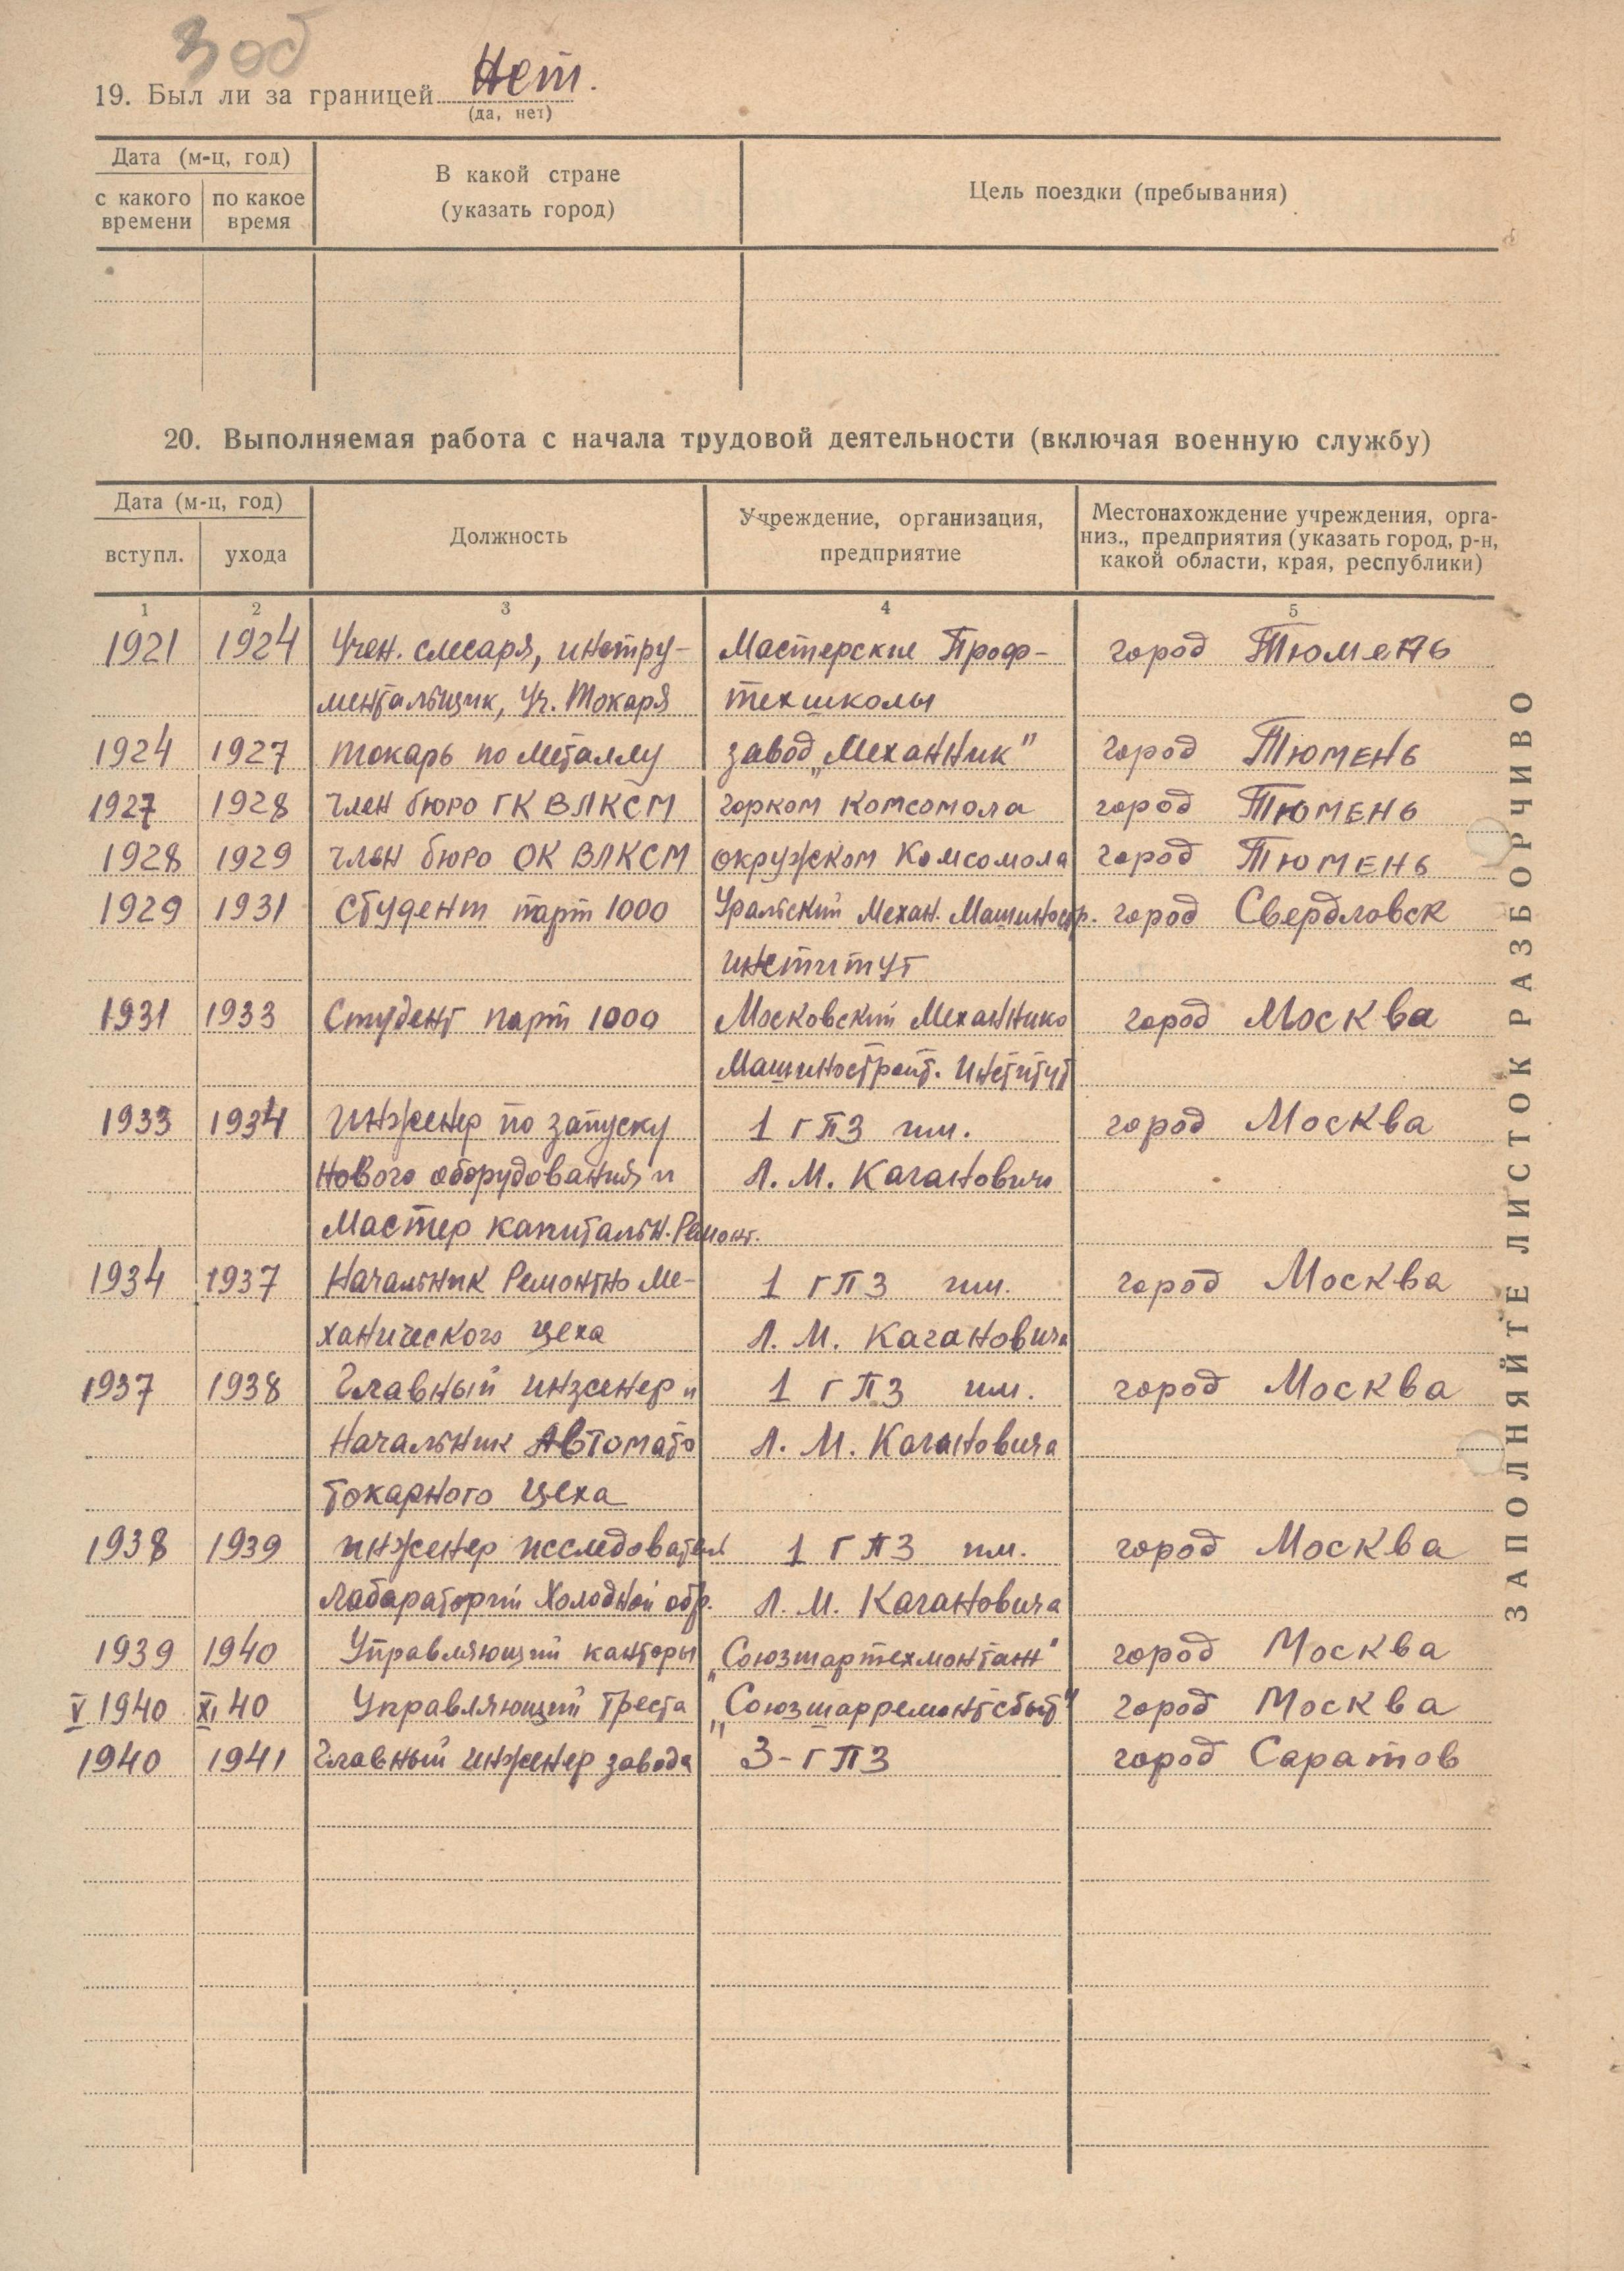 3 об
19. Был ли за границей Нет.
(да, нет)
Дата (м-ц, год)
с какого времени
по какое время
В какой стране
(указать город)
Цель поездки (пребывания)
20. Выполняемая работа с начала трудовой деятельности (включая военную службу)
Дата (м-ц, год)
вступл.
ухода
Должность
Учреждение, организация,
предприятие
Местонахождение учреждения, орга-
низ., предприятия (указать город, р-н,
какой области, края, республики)
1 2 3 4 5
1921 1924 Учен. слесаря, инстру- Мастерские Проф- город Тюмень
ментальщик, Уч. Токаря техшколы
1924 1927 токарь по металлу завод „Механник" город Тюмень
1927 1928 член бюро ГК ВЛКСМ горком Комсомола город Тюмень
1928 1929 член бюро ОК ВЛКСМ окружком Комсомола город Тюмень
1929 1931 Студент парт 1000 Уральский Механ. Машиностр. город Свердловск
институт
1931 1933 Студент парт 1000 Московский Механнико город Москва
Машиностроит. Институт
1933 1934 Инженер по запуску 1 ГПЗ им. город Москва
нового оборудования и Л. М. Кагановича
Мастер капитальн. Ремонт.
1934 1937 Начальник Ремонтно Ме- 1 ГПЗ им. город Москва
ханического цеха Л. М. Кагановича
1937 1938 Главный инженер и 1 ГПЗ им. город Москва
Начальник Автомато Л. М. Кагановича
токарного цеха
1938 1939 инженер исследователь 1 ГПЗ им. город Москва
Лабараторий Холодной обр. Л. М. Кагановича
1939 1940 Управляющий канторы „Союзшартехмонтаж" город Москва
V 1940 XI 40 Управляющий Треста „Союзшарремонтсбыт" город Москва
1940 1941 Главный инженер завода 3-ГПЗ город Саратов
ЗАПОЛНЯЙТЕ ЛИСТОК РАЗБОРЧИВО